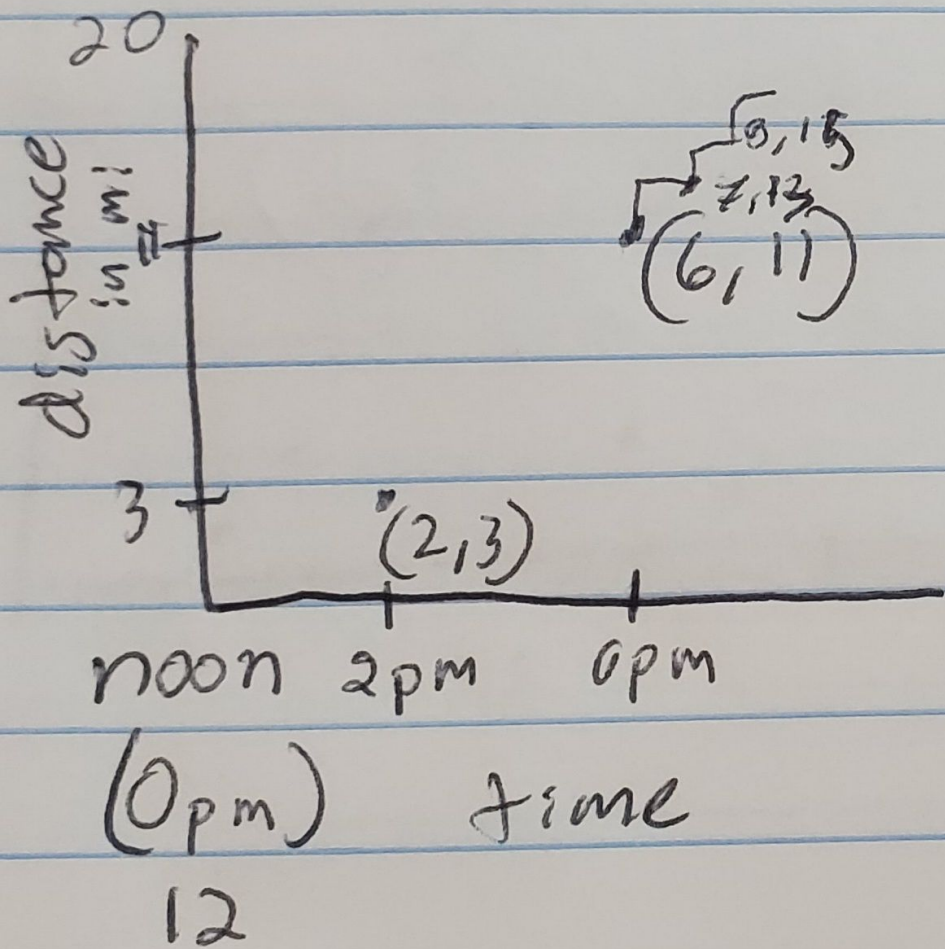 20
distance
in mi
11
8, 15
7, 13
(6, 11)
3
(2,3)
noon 2pm 6pm
(0pm) time
12